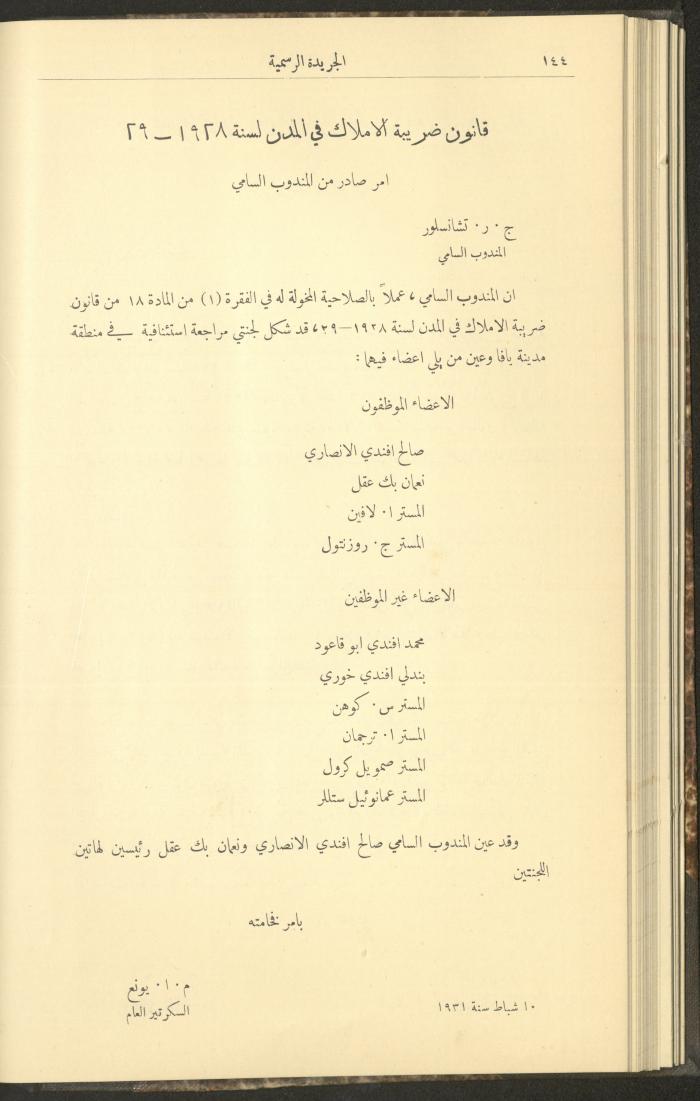 ١٤٤ الجريدة الرسمية
قانون ضريبة الاملاك في المدن لسنة ١٩٢٨ — ٢٩
امر صادر من المندوب السامي
ج ٠ ر ٠ تشانسلور
المندوب السامي
ان المندوب السامي ، عملاً بالصلاحية المخولة له في الفقرة (١) من المادة ١٨ من قانون
ضريبة الاملاك في المدن لسنة ١٩٢٨—٢٩ ، قد شكل لجنتي مراجعة استئنافية في منطقة
مدينة يافا وعين من يلي اعضاء فيهما :
الاعضاء الموظفون
صالح افندي الانصاري
نعمان بك عقل
المستر ا ٠ لافين
المستر ج ٠ روزنتول
الاعضاء غير الموظفين
محمد افندي ابو قاعود
بندلي افندي خوري
المستر س ٠ كوهن
المستر ا ٠ ترجمان
المستر صمويل كرول
المستر عمانوئيل ستللر
وقد عين المندوب السامي صالح افندي الانصاري ونعمان بك عقل رئيسين لهاتين
اللجنتين
بامر فخامته
م ٠ ا ٠ يونغ
١٠ شباط سنة ١٩٣١ السكرتير العام